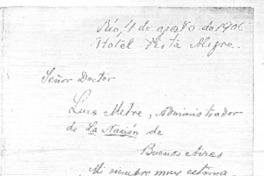 Río, 4 de agosto de 1906
Hotel Vista Alegre.
Señor Doctor
Luis Mitre, Administrador
de La Nación de
Buenos Aires
Mi siempre muy